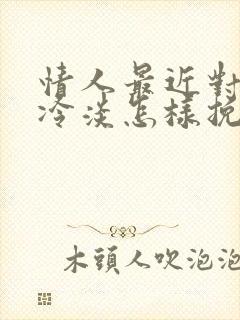 情人最近對
冷淡怎樣挽
木頭人吹泡泡